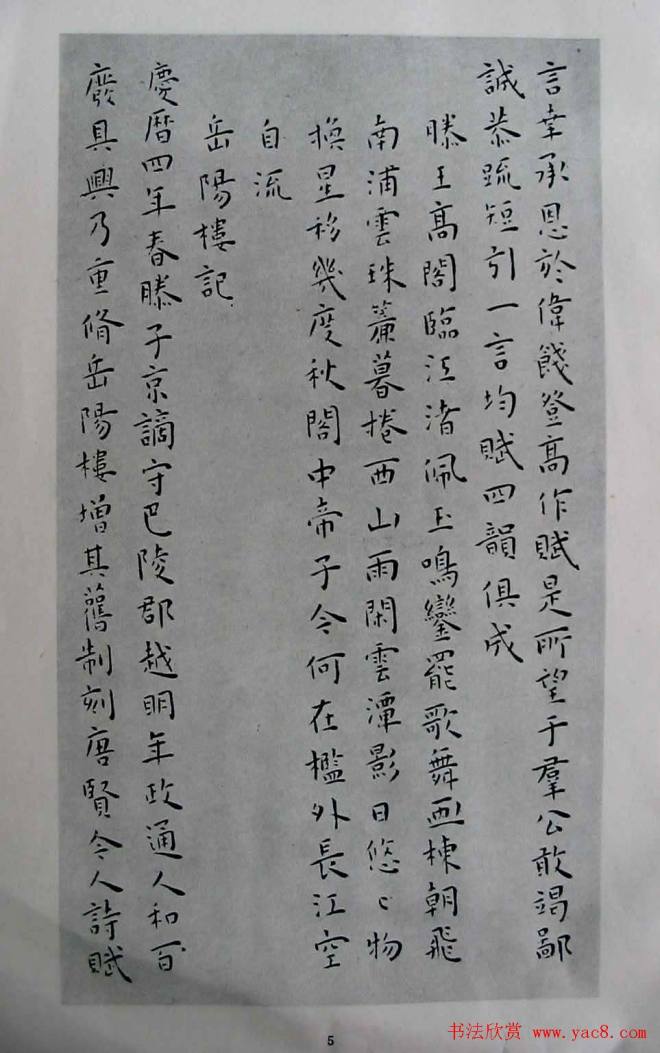 言幸承恩於偉餞登高作賦是所望于羣公敢竭鄙
誠恭疏短引一言均賦四韻俱成
滕王高閣臨江渚佩玉鳴鑾罷歌舞画棟朝飛
南浦雲珠簾暮捲西山雨閑雲潭影日悠〻物
換星移幾度秋閣中帝子今何在檻外長江空
自流
岳陽樓記
慶曆四年春滕子京謫守巴陵郡越明年政通人和百
廢具興乃重脩岳陽樓增其舊制刻唐賢令人詩賦
5
书法欣赏 www.yac8.com